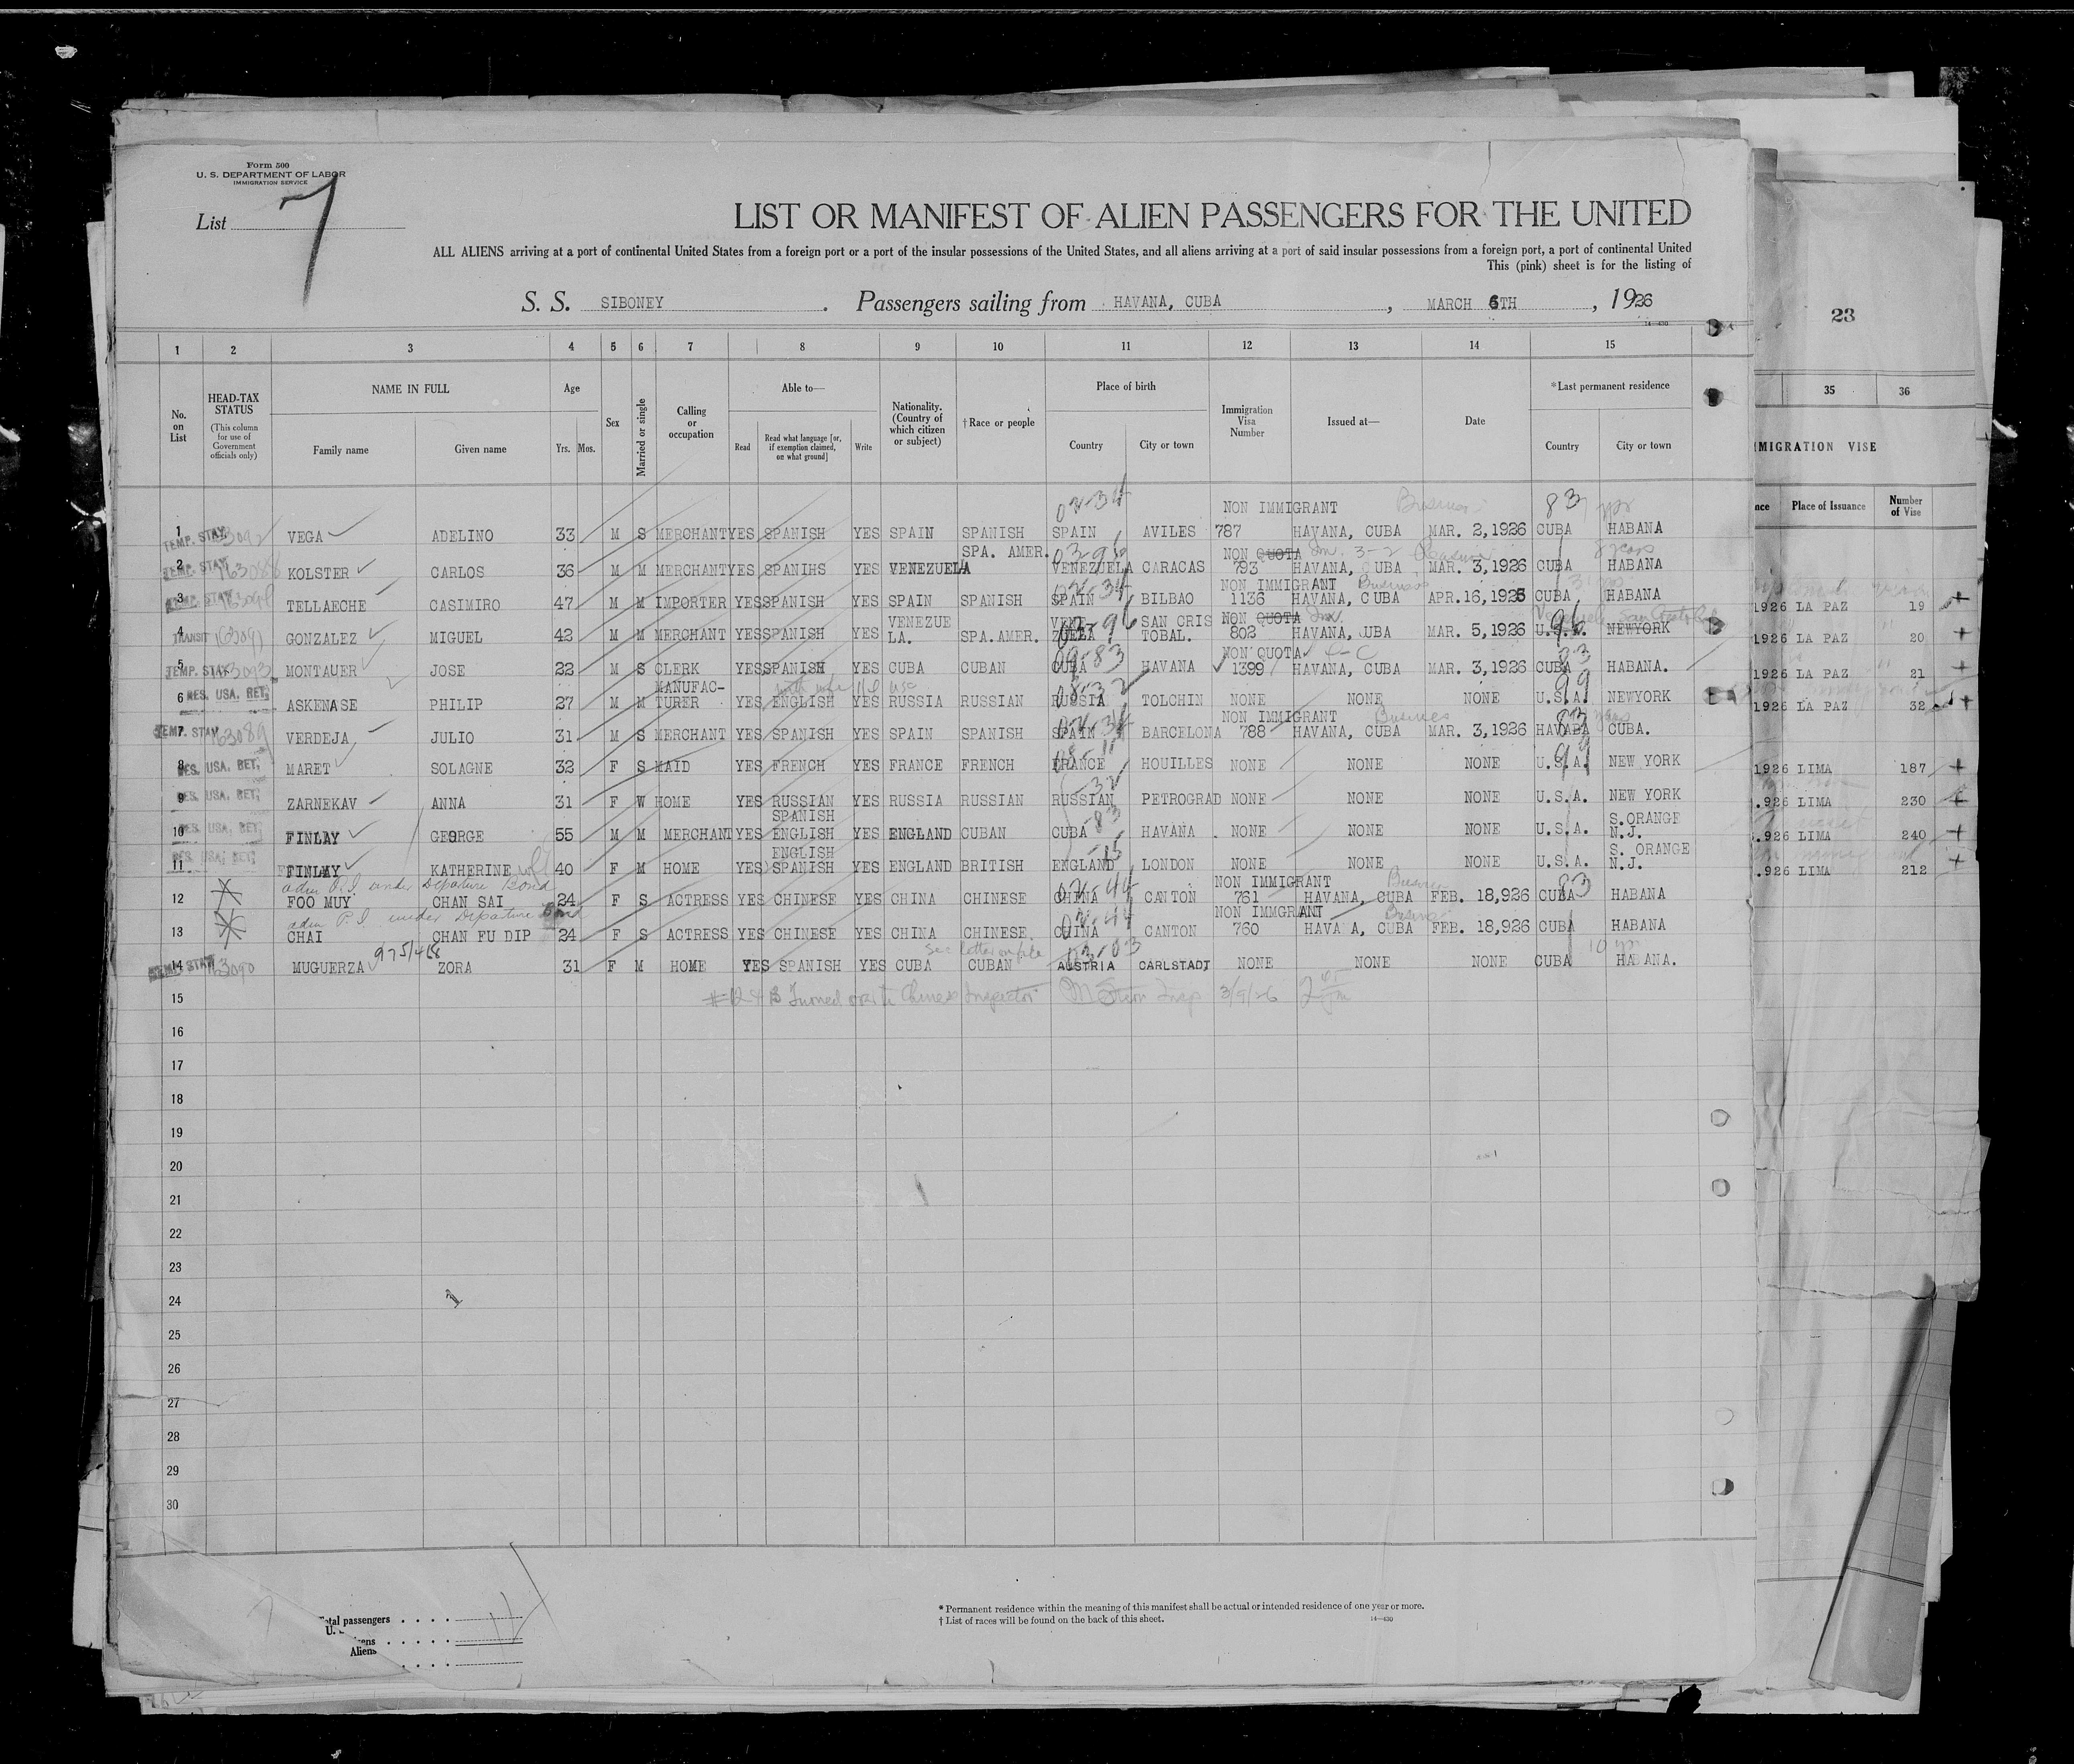 Form 500
U. S. DEPARTMENT OF LABOR
IMMIGRATION SERVICE
List 7
LIST OR MANIFEST OF ALIEN PASSENGERS FOR THE UNITED
ALL ALIENS arriving at a port of continental United States from a foreign port or a port of the insular possessions of the United States, and all aliens arriving at a port of said insular possessions from a foreign port, a port of continental United
This (pink) sheet is for the listing of
S. S. SIBONEY. Passengers sailing from HAVANA, CUBA, MARCH 6TH, 1926
14-430
23
1 2 3 4 5 6 7 8 9 10 11 12 13 14 15
35 36
No. on List
HEAD-TAX STATUS (This column for use of Government officials only)
NAME IN FULL
Family name Given name
Age
Yrs. Mos.
Sex
Married or single
Calling or occupation
Able to—
Read Read what language [or, if exemption claimed, on what ground] Write
Nationality. (Country of which citizen or subject)
†Race or people
Place of birth
Country City or town
Immigration Visa Number
Issued at—
Date
*Last permanent residence
Country City or town
MIGRATION VISE
nce Place of Issuance Number of Vise
02-34 NON IMMIGRANT Business 83
1 TEMP. STAY VEGA ADELINO 33 M S MERCHANT YES SPANISH YES SPAIN SPANISH SPAIN AVILES 787 HAVANA, CUBA MAR. 2,1926 CUBA HABANA
SPA. AMER. NON QUOTA 3-2 8 years
2 TEMP. STAY KOLSTER CARLOS 36 M M MERCHANT YES SPANIHS YES VENEZUELA VENEZUELA CARACAS 793 HAVANA, CUBA MAR. 3,1926 CUBA HABANA
NON IMMIGRANT Business
3 TELLAECHE CASIMIRO 47 M M IMPORTER YES SPANISH YES SPAIN SPANISH SPAIN BILBAO 1136 HAVANA, CUBA APR.16,1925 CUBA, HABANA
VENEZUE VENE SAN CRIS NON QUOTA
4 TRANSIT GONZALEZ MIGUEL 42 M M MERCHANT YES SPANISH YES LA. SPA.AMER. ZUELA TOBAL. 802 HAVANA, UBA MAR. 5,1926 U.S.A. NEWYORK
NON QUOTA 4-C
5 TEMP. STAY MONTAUER JOSE 22 M S CLERK YES SPANISH YES CUBA CUBAN CUBA HAVANA 1399 HAVANA, CUBA MAR. 3,1926 CUBA HABANA.
MANUFAC-
6 RES. USA. RET. ASKENASE PHILIP 27 M M TURER YES ENGLISH YES RUSSIA RUSSIAN RUSSIA TOLCHIN NONE NONE NONE U.S.A. NEWYORK
NON IMMIGRANT
7 TEMP. STAY VERDEJA JULIO 31 M S MERCHANT YES SPANISH YES SPAIN SPANISH SPAIN BARCELONA 788 HAVANA, CUBA MAR. 3,1926 HAVABA CUBA.
8 RES. USA. RET. MARET SOLAGNE 32 F S MAID YES FRENCH YES FRANCE FRENCH FRANCE HOUILLES NONE NONE NONE U.S.A. NEW YORK
9 RES. USA. RET. ZARNEKAV ANNA 31 F W HOME YES RUSSIAN YES RUSSIA RUSSIAN RUSSIAN PETROGRAD NONE NONE NONE U.S.A. NEW YORK
SPANISH S.ORANGE
10 RES. USA. RET. FINLAY GEORGE 55 M M MERCHANT YES ENGLISH YES ENGLAND CUBAN CUBA HAVANA NONE NONE NONE U.S.A. N.J.
ENGLISH S. ORANGE
11 RES. USA. RET. FINLAY KATHERINE 40 F M HOME YES SPANISH YES ENGLAND BRITISH ENGLAND LONDON NONE NONE NONE U.S.A. N.J.
adm P.I. under Departure Bond NON IMMIGRANT 83
12 FOO MUY CHAN SAI 24 F S ACTRESS YES CHINESE YES CHINA CHINESE CHINA CANTON 761 HAVANA, CUBA FEB. 18,926 CUBA HABANA
adm P.I under Departure Bond NON IMMGRANT
13 CHAI CHAN FU DIP 24 F S ACTRESS YES CHINESE YES CHINA CHINESE. CHINA CANTON 760 HAVA A, CUBA FEB. 18,926 CUBA HABANA
975/468 see letter on file 10 yrs
14 TEMP. STAY 163090 MUGUERZA ZORA 31 F M HOME YES SPANISH YES CUBA CUBAN AUSTRIA CARLSTADT NONE NONE NONE CUBA HABANA.
15 Turned over to Chinese Inspector 3/9/26
16
17
18
19
20
21
22
23
24
25
26
27
28
29
30
1926 LA PAZ 19
1926 LA PAZ 20
1926 LA PAZ 21
1926 LA PAZ 32
1926 LIMA 187
.926 LIMA 230
.926 LIMA 240
.926 LIMA 212
Total passengers
U.
Aliens
* Permanent residence within the meaning of this manifest shall be actual or intended residence of one year or more.
† List of races will be found on the back of this sheet.
14-430